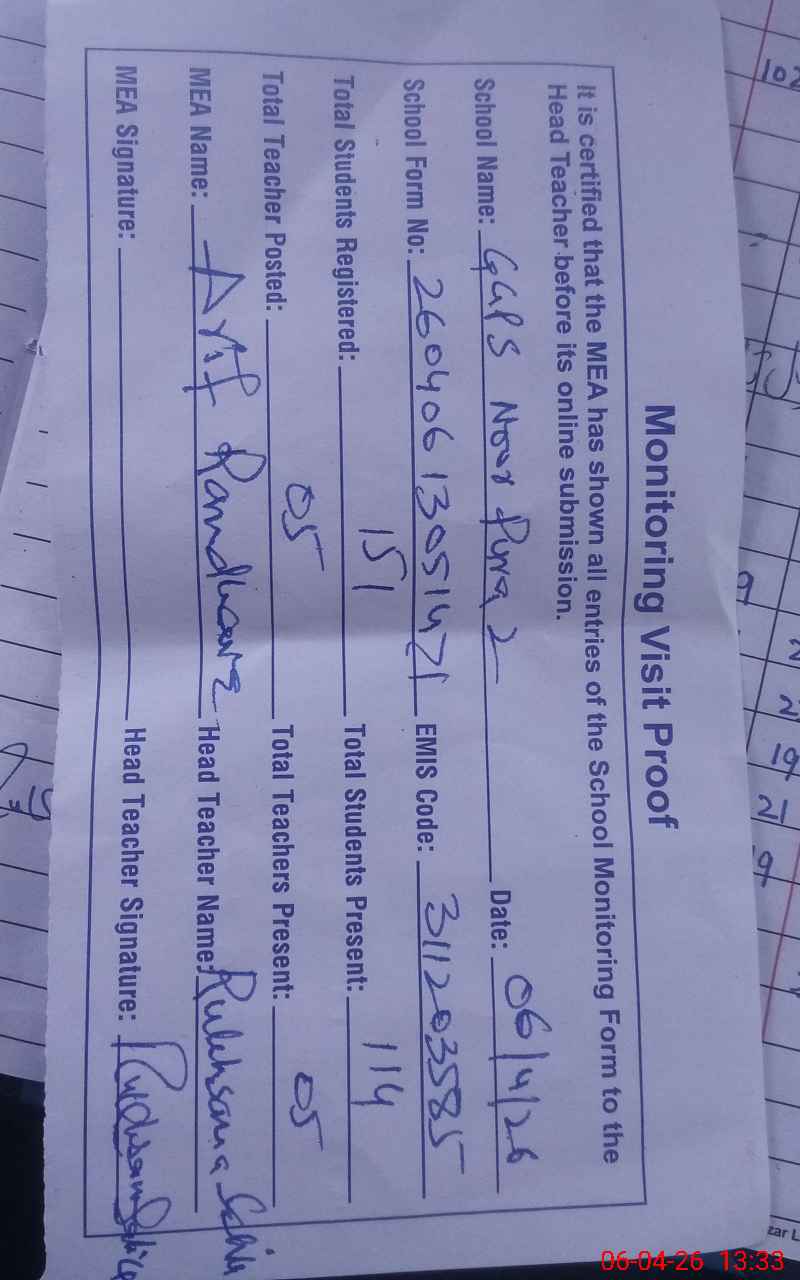 Monitoring Visit Proof
It is certified that the MEA has shown all entries of the School Monitoring Form to the
Head Teacher before its online submission.
School Name: GGPS Noor Pura 2 Date: 06/4/26
School Form No: 2604061305147 EMIS Code: 311203585
Total Students Registered: 151 Total Students Present: 114
Total Teacher Posted: 05 Total Teachers Present: 05
MEA Name: Arif Randhawa Head Teacher Name: Rukhsana
MEA Signature: Head Teacher Signature: Rukhsana
102
19
21
9
zar L
06-04-26 13:33